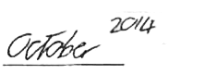 October 2014